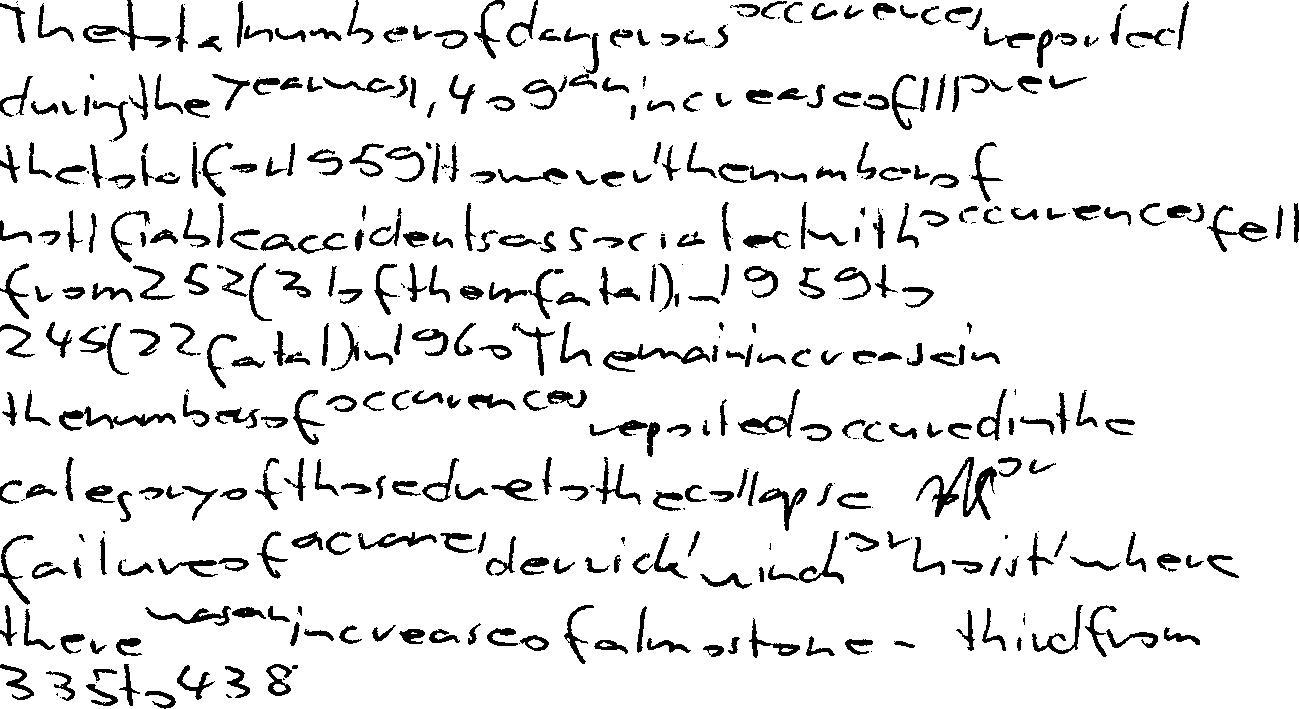 The total number of dangerous occurences reported
during the year was 1,409, an increase of 111 over
the total for 1959. However, the number of
notifiable accidents associated with occurences fell
from 252 (31 of them fatal), in 1959 to
245 (22 fatal) in 1960. The main increase in
the number of occurences reported occured in the
category of those due to the collapse or
failure of a crane, derrick, winch or hoist, where
there was an increase of almost one - third from
335 to 438